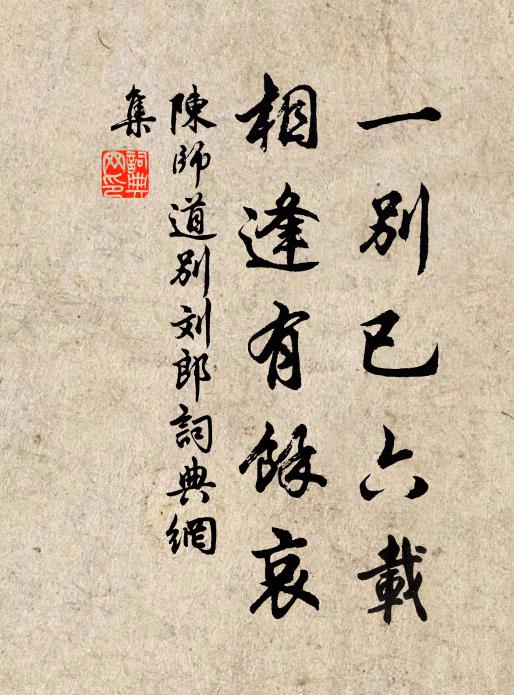 一别已六載
相逢有餘哀
陳師道别刘郎詞典網
集
詞典网印